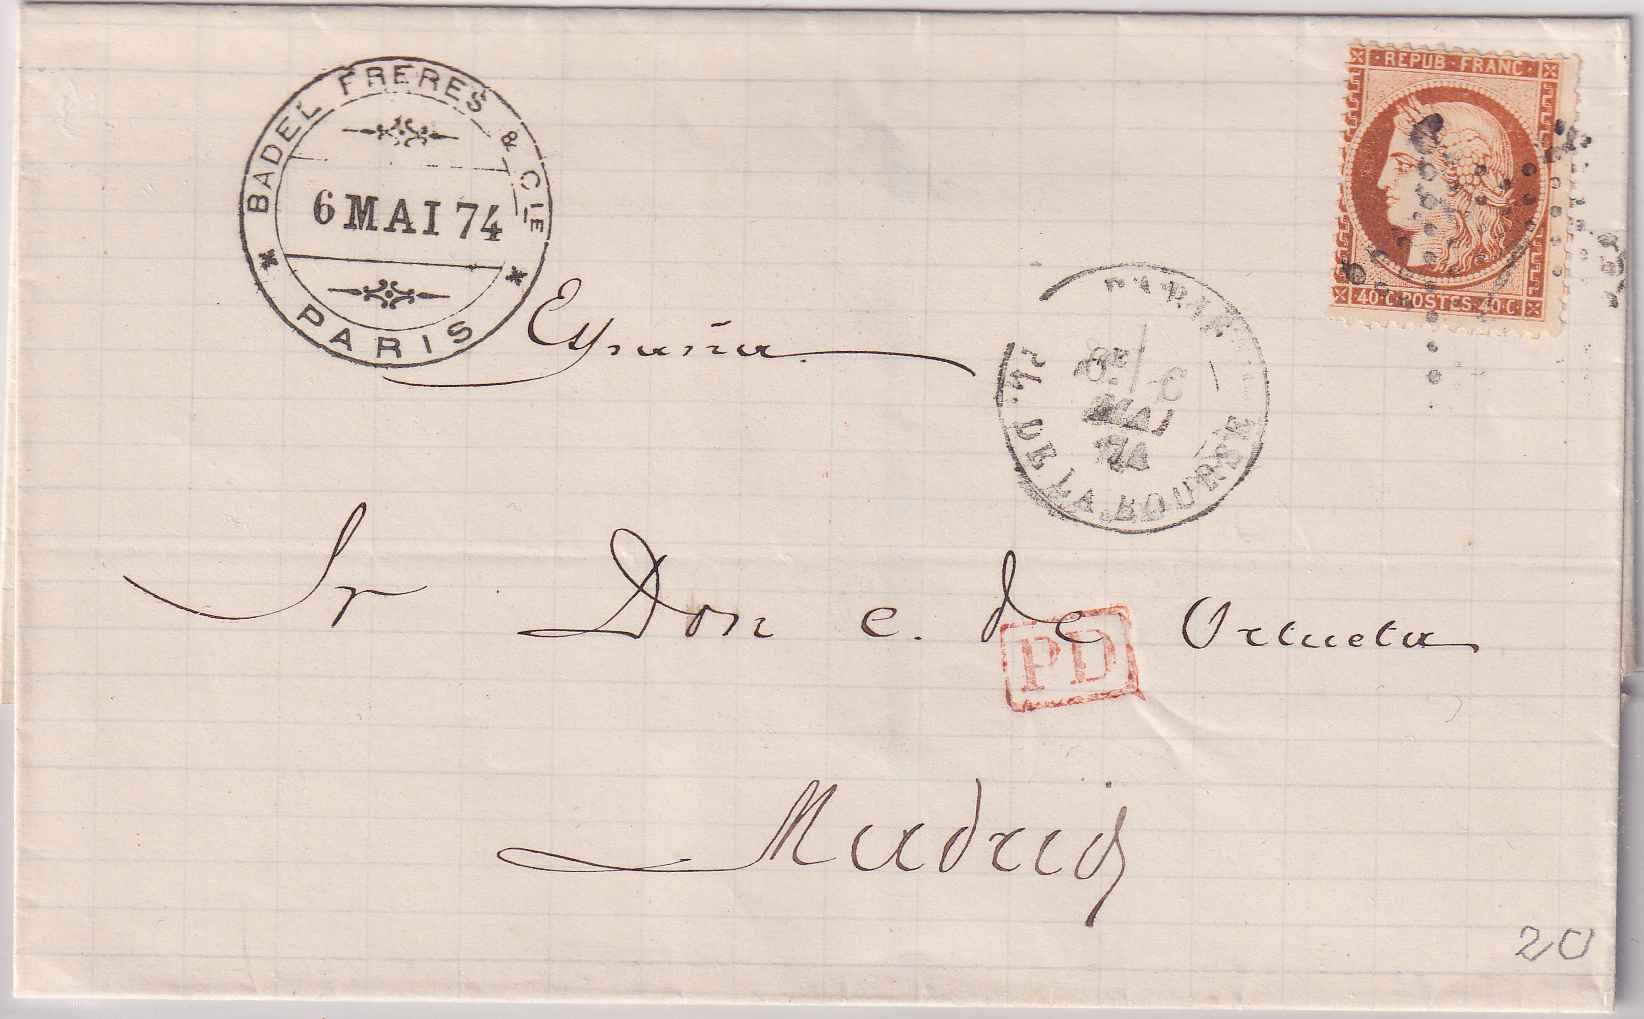 BADEL FRERES & CIE
6 MAI 74
* PARIS *
REPUB · FRANC ·
40·C·POSTES·40·C·
España
PARIS
6
MAI
74
PL. DE LA BOURSE
Sr Don E. de Ortueta
PD
Madrid
20